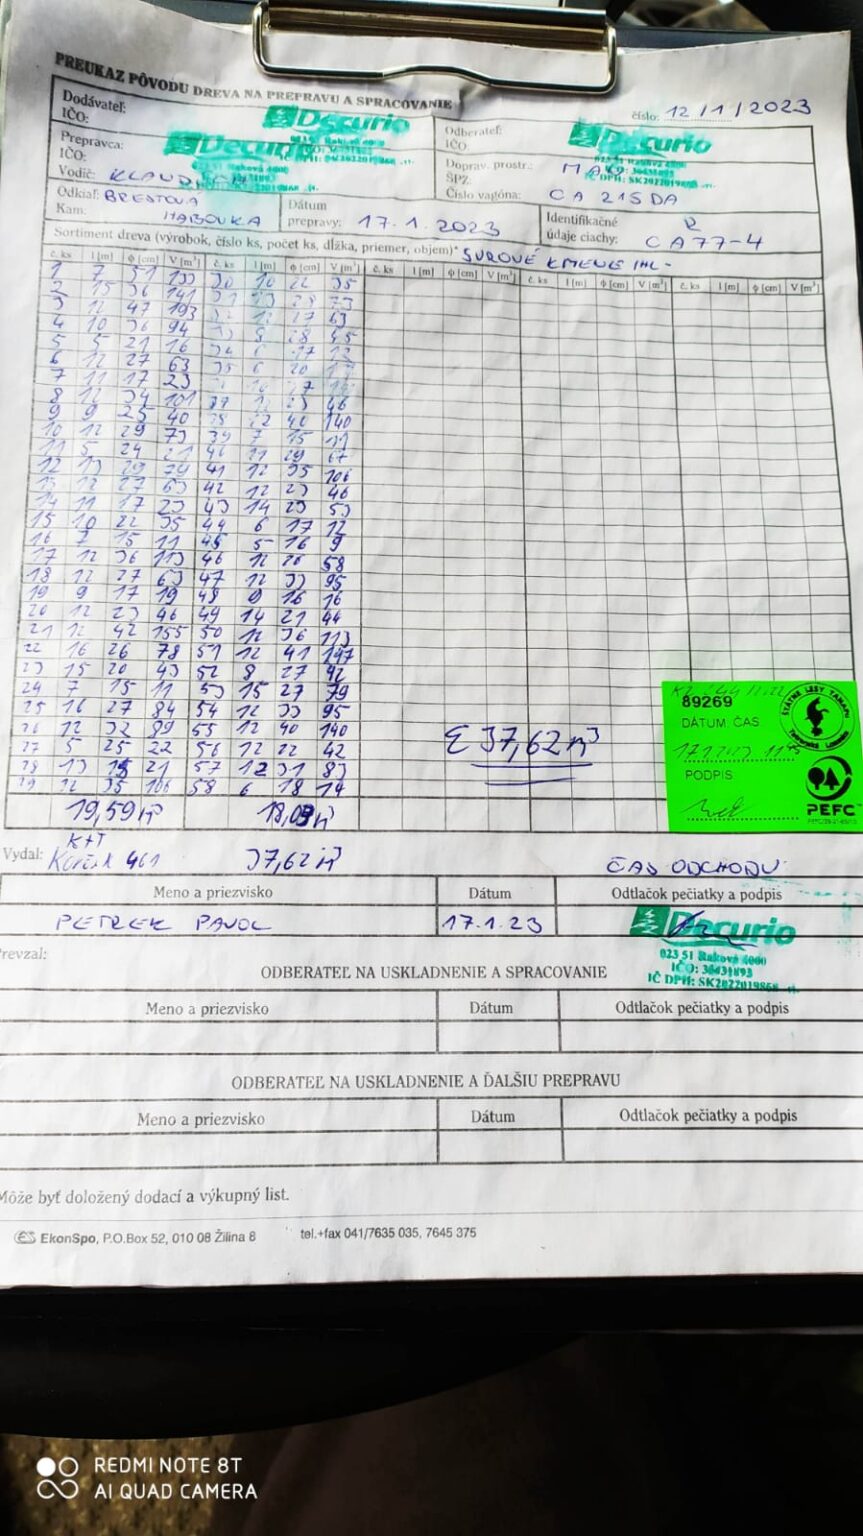 PREUKAZ PÔVODU DREVA NA PREPRAVU A SPRACOVANIE
číslo: 12/1/2023
Dodávateľ:
IČO:
Decurio
Odberateľ:
IČO:
Decurio
023 51 Raková 4000
IČO: 36431893
IČ DPH: SK2022019868
Prepravca:
IČO:
Vodič:
Decurio
Doprav. prostr.: MAN
ŠPZ.
Číslo vagóna: CA 215 DA
Odkiaľ: BRESTOVÁ
Kam: HABOVKA
Dátum
prepravy: 17.1.2023
Identifikačné
údaje ciachy: CA 77-4
Sortiment dreva (výrobok, číslo ks, počet ks, dĺžka, priemer, objem)* SUROVÉ KMENE IHL-
č. ks l [m] ϕ [cm] V [m³] č. ks l [m] ϕ [cm] V [m³] č. ks l [m] ϕ [cm] V [m³] č. ks l [m] ϕ [cm] V [m³] č. ks l [m] ϕ [cm] V [m³]
1 7 51 133 30 10 22 35
2 15 36 141 31 28 73
3 12 47 193 12 27 63
4 10 36 94 33 28 45
5 5 21 16 34 6 17 12
6 12 27 63 35 6 20
7 11 17 23
8 12 34 101 37 12 23 46
9 9 25 40 140
10 12 29 73 39 7 15 11
11 5 24 21 29 67
12 13 29 79 41 12 35 106
13 12 27 63 42 12 23 46
14 11 17 23 43 14 23 53
15 10 22 35 44 6 17 12
16 7 15 11 45 5 16 9
17 12 36 113 46 12 26 58
18 12 27 63 47 12 33 95
19 9 17 19 48 16 16
20 12 23 46 49 14 21 44
21 12 42 155 50 12 36 113
22 16 26 78 51 12 41 147
23 15 20 43 52 8 27 42
24 7 15 11 53 15 27 79
25 16 27 84 54 12 33 95
26 12 32 89 55 12 40 140
27 5 25 22 56 12 22 42
28 13 15 21 57 12 31 83
29 12 35 106 58 6 18 14
19,59 m³ 18,03 m³
Σ 37,62 m³
89269
DÁTUM ČAS
PODPIS
ŠTÁTNE LESY TANAPU
Tatranská Lomnica
PEFC
Vydal:
37,62 m³
ČAS ODCHODU
Meno a priezvisko Dátum Odtlačok pečiatky a podpis
PETREK PAVOL 17.1.23
Decurio
023 51 Raková 4000
IČO: 36431893
IČ DPH: SK2022019868
Prevzal:
ODBERATEĽ NA USKLADNENIE A SPRACOVANIE
Meno a priezvisko Dátum Odtlačok pečiatky a podpis
ODBERATEĽ NA USKLADNENIE A ĎALŠIU PREPRAVU
Meno a priezvisko Dátum Odtlačok pečiatky a podpis
Môže byť doložený dodací a výkupný list.
EkonSpo, P.O.Box 52, 010 08 Žilina 8 tel.+fax 041/7635 035, 7645 375
REDMI NOTE 8T
AI QUAD CAMERA